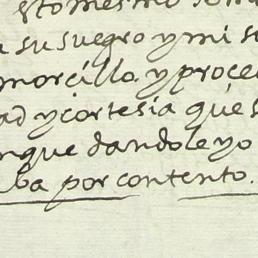 su suegro y mi s
morcillo. y proce
ad y cortesia que s
nque dandole yo
ba por contento.